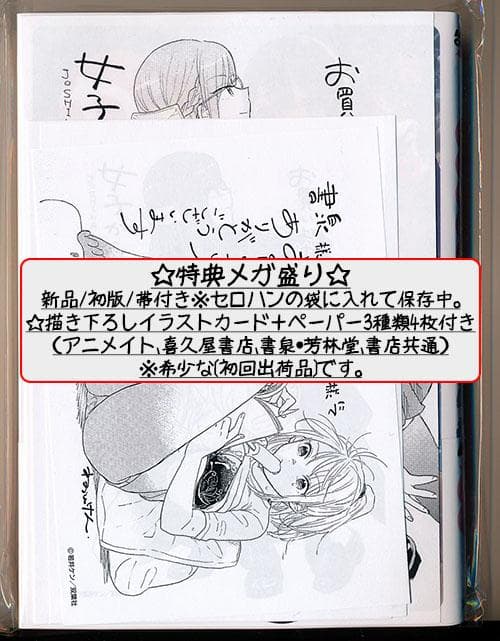 お買
女子
書泉 様
ありがとう
ございます
☆特典メガ盛り☆
新品/初版/帯付き※セロハンの袋に入れて保存中。
☆描き下ろしイラストカード＋ペーパー3種類4枚付き
(アニメイト,喜久屋書店,書泉•芳林堂,書店共通)
※希少な(初回出荷品)です。
©若井ケン/双葉社